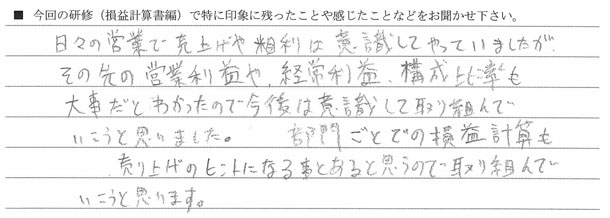 ■ 今回の研修（損益計算書編）で特に印象に残ったことや感じたことなどをお聞かせ下さい。
日々の営業で売上げや粗利は意識してやっていましたが、
その先の営業利益や、経常利益、構成比率も
大事だとわかったので今後は意識して取り組んで
いこうと思いました。 部門ごとでの損益計算も
売り上げのヒントになる事とあると思うので取り組んで
いこうと思います。